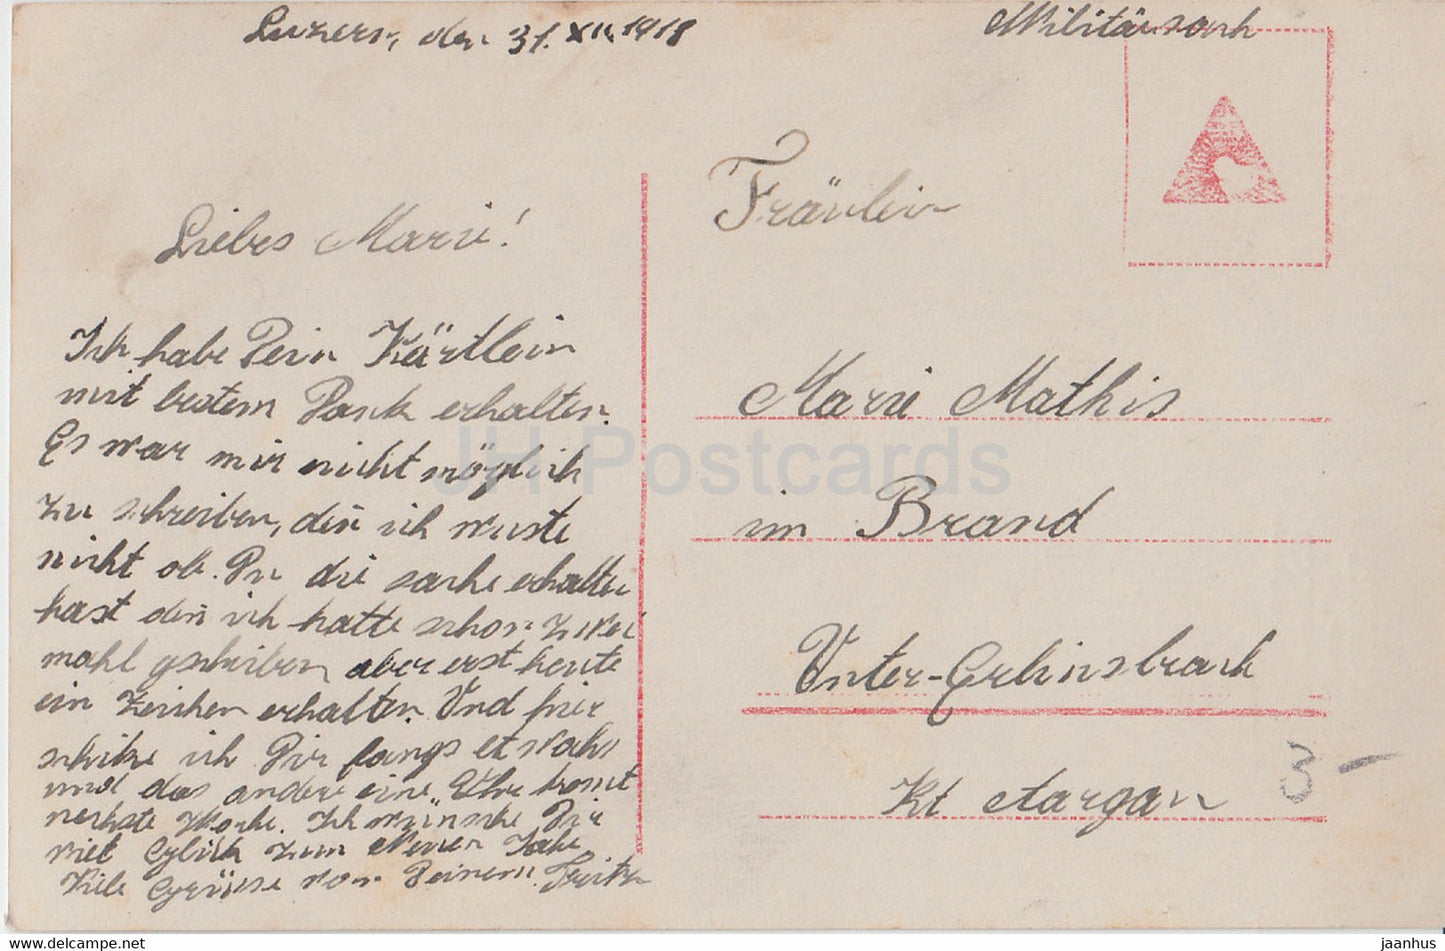 Luzern, den 31. XII. 1918
Militärsach
Liebes Marie!
Ich habe Dein Kärtlein
mit bestem Dank erhalten.
Es war mir nicht möglich
zu schreiben, den ich wuste
nicht ob. Du die sache erhalten
hast den ich hatte schon zwei
mahl gschriben aber erst heute
ein Zeichen erhalten. Und hier
schike ich Dir etwahs
und das andere eine Uhr komt
nechste Woche. Ich wünsche Dir
viel Glück zum Neuen Jahr
Viele Grüsse von Deinem Fritz
Fräulein
Marie Mathis
im Brand
Unter-Erlinsbach
Kt Aargau
3-
JH Postcards
delcampe.net
jaanhus